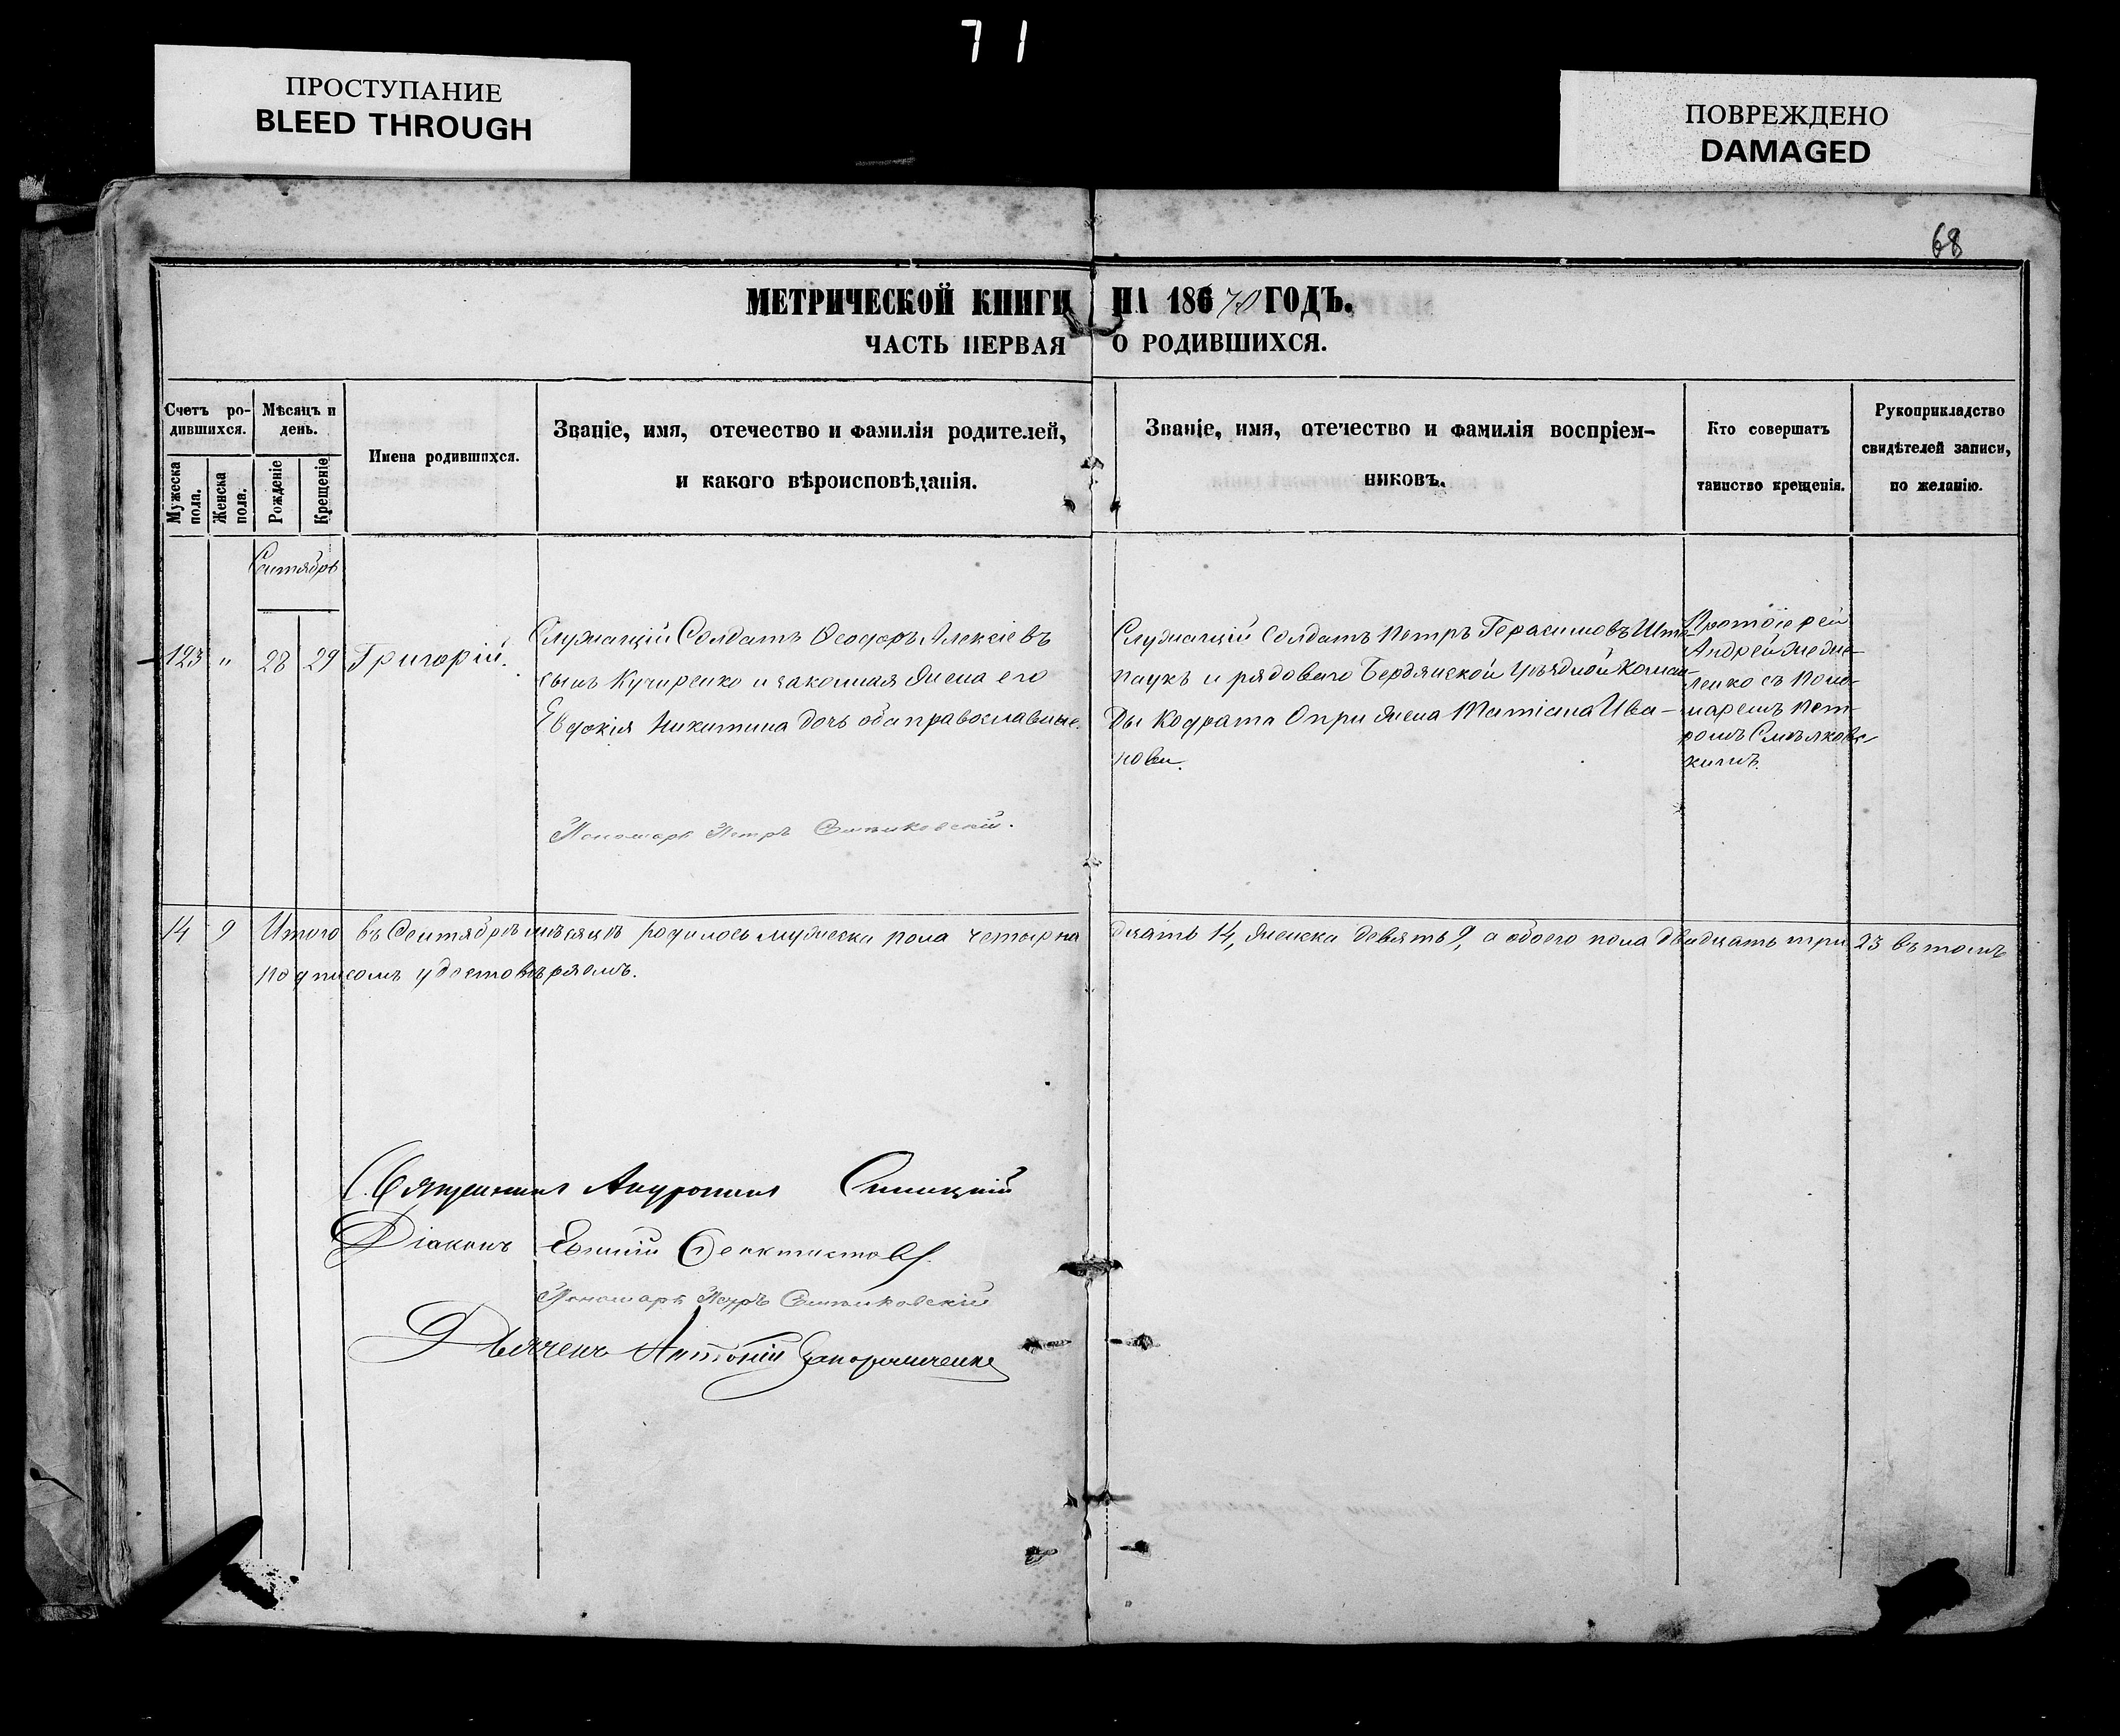 71
ПРОСТУПАНИЕ
BLEED THROUGH
ПОВРЕЖДЕНО
DAMAGED
68
МЕТРИЧЕСКОЙ КНИГИ НА 18670 ГОДЪ.
ЧАСТЬ ПЕРВАЯ О РОДИВШИХСЯ.
Счетъ ро-
дившихся.
Мужеска пола.
Женска пола.
Мѣсяцъ и
день.
Рожденіе
Крещеніе
Имена родившихся.
Званіе, имя, отечество и фамилія родителей,
и какого вѣроисповѣданія.
Званіе, имя, отечество и фамилія воспріем-
никовъ.
Кто совершатъ
таинство крещенія.
Рукоприкладство
свидѣтелей записи,
по желанію.
Сентябрь
123 " 28 29 Григорій.
Служащій Солдатъ Ѳеодоръ Алексіевъ
сынъ Кучиренко и законная жена его
Евдокія Никитина дочь оба православные.
Служащій Солдатъ Петръ Герасимовъ
паукъ и рядоваго Бердянской Уѣздной Коман-
ды Кодрата жена Татіана Ива-
нова.
Протоіерей
Андрей
ленко съ Поно-
маремъ Пет-
ромъ
кимъ.
Пономарь Петръ
14 9 Итого въ Сентябрѣ мѣсяцѣ родилось мужеска пола четырна дцать 14, женска девять 9, а обоего пола двадцать три 23 въ томъ
подписомъ удостовѣряемъ.
Священникъ Андроникъ Синицкій
Діаконъ Ѳеоктистовъ
Пономарь Петръ
Дьячекъ Антоній